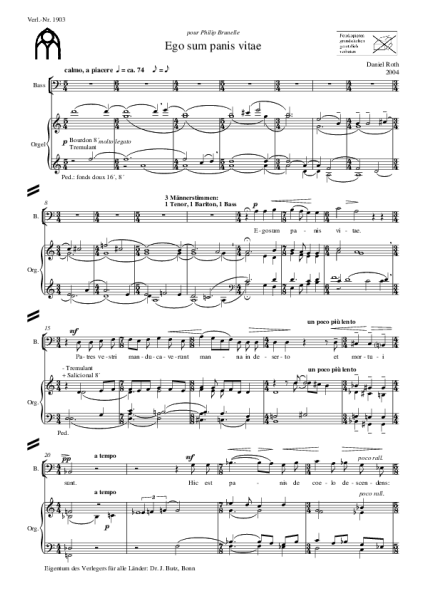 Verl.-Nr. 1903
pour Philip Brunelle
Ego sum panis vitae
Daniel Roth
2004
calmo, a piacere ♩ = ca. 74
Bass
Orgel
p Bourdon 8´ molto legato
Tremulant
Ped.: fonds doux 16´, 8´
8
3 Männerstimmen:
1 Tenor, 1 Bariton, 1 Bass
p
B.
E - go sum pa - nis vi - tae.
Org.
15
mf
un poco più lento
B.
Pa - tres ve - stri man - du - ca - ve - runt man - na in de - ser - to et mor - tu - i
- Tremulant
+ Salicional 8´
un poco più lento
Org.
Ped.
20
pp
a tempo
mf
poco rall.
B.
sunt. Hic est pa - nis de coe - lo de - scen - dens:
a tempo
poco rall.
Org.
Eigentum des Verlegers für alle Länder: Dr. J. Butz, Bonn